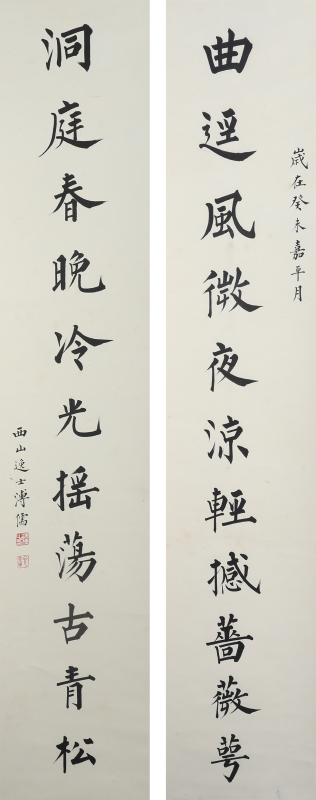 歲在癸未嘉平月
曲逕風微夜涼輕撼薔薇萼
洞庭春晚冷光摇蕩古青松
西山逸士溥儒